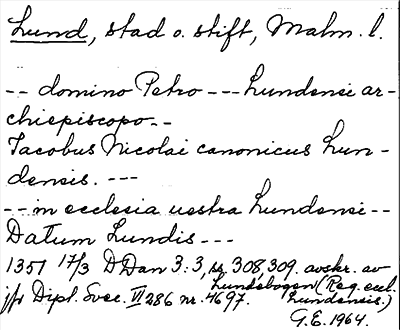 Lund, stad o. stift, Malm. l.
-- domino Petro --- Lundensi ar-
chiepiscopo--
Jacobus Nicolai canonicus Lun-
densis. ---
-- in ecclesia uestra Lundensi --
Datum Lundis ---
1351 17/3 DDan 3:3, ss. 308, 309. avskr. av
Lundebogen (Reg. eccl.
jfr Dipl. Svec. VI 286 nr. 4697. Lundensis.)
G.E. 1964.